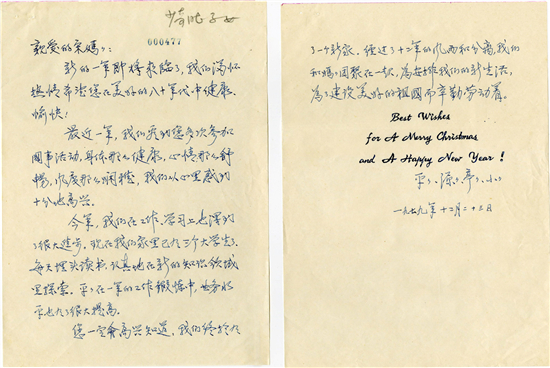 000477
亲爱的宋妈妈:
新的一年即将来临了,我们满怀
热情希望您在美好的八十年代中健康、
愉快!
最近一年,我们看到您多次参加
国事活动,身体那么健康,心情那么舒
畅,态度那么娴雅,我们从心里感到
十分地高兴。
今年,我们在工作、学习上也得到
了很大进步。现在我们家里已有三个大学生了,
每天埋头读书,认真地在新的知识领域
里探索。平平在一年的工作锻炼中,业务水
平也有了很大提高。
您一定会高兴知道,我们终于有
了一个新家。经过了十二年的风雨和分离,我们
和妈妈团聚在一起,为安排我们的新生活,
为了建设美好的祖国而辛勤劳动着。
Best Wishes
for A Merry Christmas
and A Happy New Year !
平平、源源、亭亭、小小
一九七九年十二月二十三日